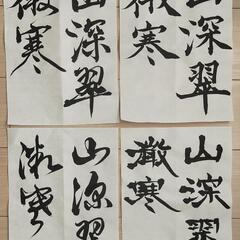 山深翠
微寒
山深翠
微寒
山深翠
微寒
山深翠
微寒